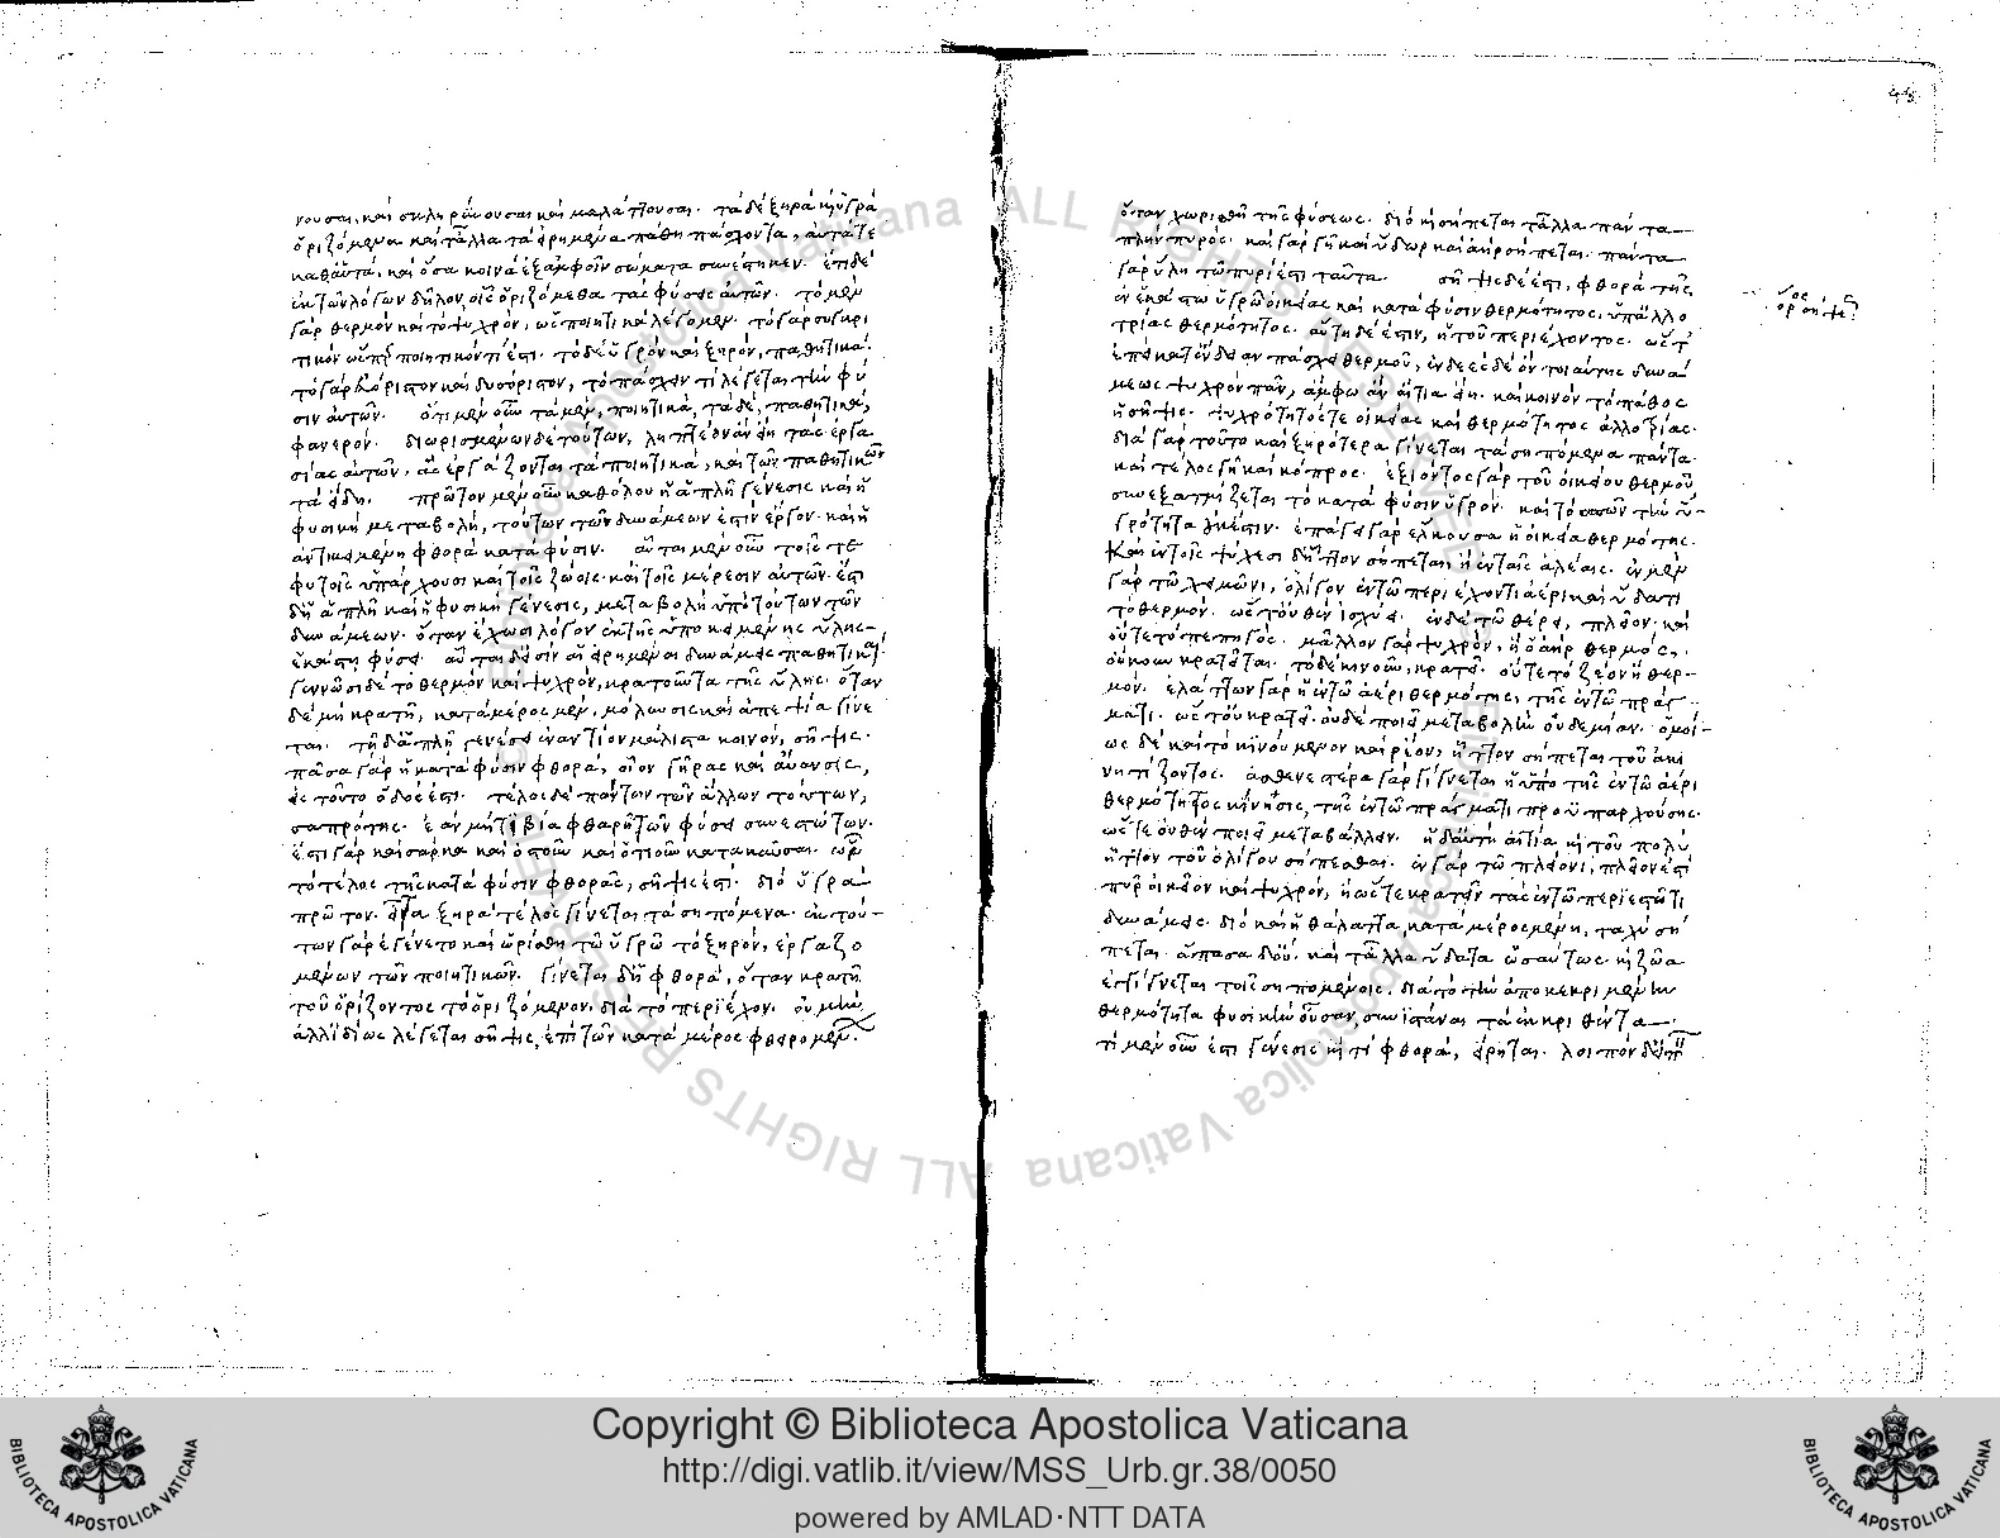 νουσαι, καὶ σκληρύνουσαι καὶ μαλάττουσαι. τὰ δὲ ξηρὰ κ(αὶ) ὑγρὰ
ὁριζόμενα καὶ τἆλλα τὰ εἰρημένα πάθη πάσχοντα, αὐτά τε
καθ' αὑτά, καὶ ὅσα κοινὰ ἐξ ἀμφοῖν σώματα συνέστηκεν. ἔτι δὲ
ἐκ τῶν λόγων δῆλον οἷς ὁριζόμεθα τὰς φύσεις αὐτῶν. τὸ μὲν
γὰρ θερμὸν καὶ τὸ ψυχρόν, ὡς ποιητικὰ λέγομεν. τὸ γὰρ συγκρι
τικὸν ὥσπερ ποιητικόν τί ἐστι. τὸ δὲ ὑγρὸν καὶ ξηρόν, παθητικά.
τὸ γὰρ εὐόριστον καὶ δυσόριστον, τὸ πάσχειν τι λέγεται τὴν φύ
σιν αὐτῶν. ὅτι μὲν οὖν τὰ μὲν, ποιητικά, τὰ δὲ, παθητικά,
φανερόν. διωρισμένων δὲ τούτων, ληπτέον ἂν εἴη τὰς ἐργα
σίας αὐτῶν, ἃς ἐργάζονται τὰ ποιητικά, καὶ τῶν παθητικῶν
τὰ εἴδη. πρῶτον μὲν οὖν καθόλου ἡ ἁπλῆ γένεσις καὶ ἡ
φυσικὴ μεταβολή, τούτων τῶν δυνάμεών ἐστιν ἔργον. καὶ ἡ
ἀντικειμένη φθορὰ κατὰ φύσιν. αὗται μὲν οὖν τοῖς τε
φυτοῖς ὑπάρχουσι καὶ τοῖς ζώοις. καὶ τοῖς μέρεσιν αὐτῶν. ἔστι
δὴ ἁπλῆ καὶ ἡ φυσικὴ γένεσις, μεταβολὴ ὑπὸ τούτων τῶν
δυνάμεων. ὅταν ἔχωσι λόγον ἐκ τῆς ὑποκειμένης ὕλης
ἑκάστη φύσει. αὗται δ' εἰσὶν αἱ εἰρημέναι δυνάμεις παθητικαί.
γεννῶσι δὲ τὸ θερμὸν καὶ ψυχρόν, κρατοῦντα τῆς ὕλης. ὅταν
δὲ μὴ κρατῇ, κατὰ μέρος μὲν, μόλυνσις καὶ ἀπεψία γίνε
ται. τῇ δ' ἁπλῇ γενέσει ἐναντίον μάλιστα κοινόν, σῆψις.
πᾶσα γὰρ ἡ κατὰ φύσιν φθορά, οἷον γῆρας καὶ αὔανσις,
εἰς τοῦτο ὁδός ἐστι. τέλος δὲ πάντων τῶν ἄλλων τούτων,
σαπρότης. ἐὰν μή τι βίᾳ φθαρῇ τῶν φύσει συνεστώτων.
ἔστι γὰρ καὶ σάρκα καὶ ὀστοῦν καὶ ὁτιοῦν κατακαῦσαι. ὧν
τὸ τέλος τῆς κατὰ φύσιν φθορᾶς, σῆψίς ἐστι. διὸ ὑγρὰ
πρῶτον. εἶτα ξηρὰ τέλος γίνεται τὰ σηπόμενα. ἐκ τού-
των γὰρ ἐγένετο καὶ ὡρίσθη τῷ ὑγρῷ τὸ ξηρόν, ἐργαζο
μένων τῶν ποιητικῶν. γίνεται δ' ἡ φθορά, ὅταν κρατῇ
τοῦ ὁρίζοντος τὸ ὁριζόμενον. διὰ τὸ περιέχον. οὐ μὴν
ἀλλ' ἰδίως λέγεται σῆψις, ἐπὶ τῶν κατὰ μέρος φθειρομένων.
ὅταν χωρισθῇ τῆς φύσεως. διὸ κ(αὶ) σήπεται τἆλλα πάντα
πλὴν πυρός. καὶ γὰρ γῆ καὶ ὕδωρ καὶ ἀὴρ σήπεται. πάντα
γὰρ ὕλη τῷ πυρί ἐστι ταῦτα. σῆψις δέ ἐστι, φθορὰ τῆς
ἐν ἑκάστῳ ὑγρῷ οἰκείας καὶ κατὰ φύσιν θερμότητος, ὑπ' ἀλλο
ὅρος σήψεως
τρίας θερμότητος. αὕτη δέ ἐστιν, ἡ τοῦ περιέχοντος. ὥστ'
ἐπεὶ κατ' ἔνδειαν πάσχει θερμοῦ, ἐνδεὲς δὲ ὂν τοιαύτης δυνά
μεως ψυχρὸν πᾶν, ἄμφω ἂν αἴτια εἴη. καὶ κοινὸν τὸ πάθος
ἡ σῆψις. ψυχρότητός τε οἰκείας καὶ θερμότητος ἀλλοτρίας.
διὰ γὰρ τοῦτο καὶ ξηρότερα γίνεται τὰ σηπόμενα πάντα.
καὶ τέλος γῆ καὶ κόπρος. ἐξιόντος γὰρ τοῦ οἰκείου θερμοῦ
συνεξατμίζεται τὸ κατὰ φύσιν ὑγρόν. καὶ τὸ σπῶν τὴν ὑ-
γρότητα οὐκ ἔστιν. ἐπάγει γὰρ ἕλκουσα ἡ οἰκεία θερμότης.
Καὶ ἐν τοῖς ψύχεσι δ' ἧττον σήπεται, ἢ ἐν ταῖς ἀλέαις. ἐν μὲν
γὰρ τῷ χειμῶνι, ὀλίγον ἐν τῷ περιέχοντι ἀέρι καὶ ὕδατι
τὸ θερμόν. ὥστ' οὐθὲν ἰσχύει. ἐν δὲ τῷ θέρει, πλεῖον. καὶ
οὔτε τὸ πεπηγός. μᾶλλον γὰρ ψυχρόν, ἢ ὁ ἀὴρ θερμός,
οὔκουν κρατεῖται. τὸ δὲ κινοῦν, κρατεῖ. οὔτε τὸ ζέον ἢ θερ-
μόν. ἐλάττων γὰρ ἡ ἐν τῷ ἀέρι θερμότης, τῆς ἐν τῷ πράγ
ματι. ὥστ' οὐ κρατεῖ. οὐδὲ ποιεῖ μεταβολὴν οὐδεμίαν. ὁμοί-
ως δὲ καὶ τὸ κινούμενον καὶ ῥέον, ἧττον σήπεται τοῦ ἀκι
νητίζοντος. ἀσθενεστέρα γὰρ γίγνεται ἡ ὑπὸ τῆς ἐν τῷ ἀέρι
θερμότητος κίνησις, τῆς ἐν τῷ πράγματι προϋπαρχούσης.
ὥστε οὐθὲν ποιεῖ μεταβάλλειν. ἡ δ' αὐτὴ αἰτία κ(αὶ) τοῦ πολὺ
ἧττον τοῦ ὀλίγου σήπεσθαι. ἐν γὰρ τῷ πλείονι, πλεῖόν ἐστι
πῦρ οἰκεῖον καὶ ψυχρόν, ἢ ὥστε κρατεῖν τὰς ἐν τῷ περιεστῶτι
δυνάμεις. διὸ καὶ ἡ θάλαττα, κατὰ μέρος μὲν, ταχὺ σή
πεται. ἅπασα δ' οὔ. καὶ τἆλλα ὕδατα ὡσαύτως. κ(αὶ) ζῶα
ἐγγίγνεται τοῖς σηπομένοις. διὰ τὸ τὴν ἀποκεκριμένην
θερμότητα φυσικὴν οὖσαν, συνιστάναι τὰ ἐκκριθέντα.
τί μὲν οὖν ἐστι γένεσις κ(αὶ) τί φθορά, εἴρηται. λοιπὸν δ' εἰπεῖν
Copyright © Biblioteca Apostolica Vaticana
http://digi.vatlib.it/view/MSS_Urb.gr.38/0050
powered by AMLAD·NTT DATA